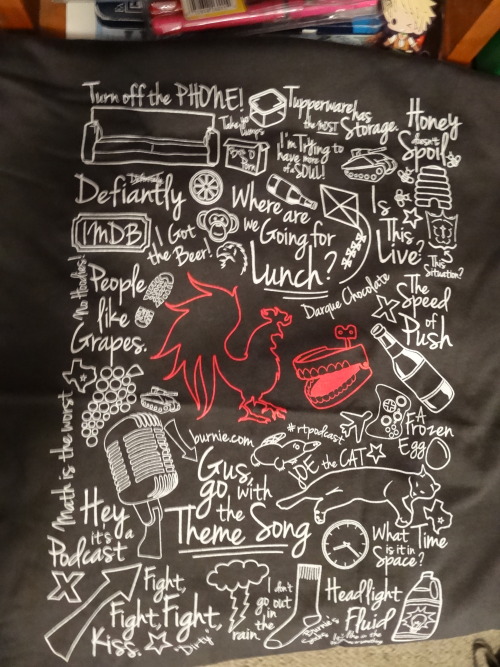 Turn off the PHONE!
Tupperware has
the MOST Storage.
Honey
doesn't
Spoil
I'm Trying to
have more
of a SOUL!
Definitely
Defiantly
Where are
we Going for
Lunch?
Is
This
Live?
This
Situation?
IMDB
I Got
the Beer!
No Hoodies!
People
like
Grapes.
Darque Chocolate
The
Speed
of
Push
Math is the worst
burnie.com
#rtpodcast
JOE the CAT
EA
Frozen
Egg
Gus,
go with
the
Theme Song
Hey
it's a
Podcast
What Time
is it in
Space?
Fight,
Fight, Fight,
Kiss.
"Dirty"
I don't
go out
in the
rain.
Headlight
Fluid